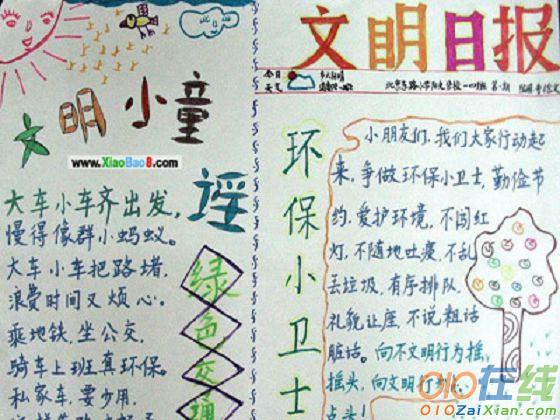 文明小童谣
www.XiaoBao8.com
大车小车齐出发，
慢得像群小蚂蚁。
大车小车把路堵，
浪费时间又烦心。
乘地铁，坐公交，
骑车上班真环保。
私家车，要少用，
绿色交通
文明日报
今日
天气
环保小卫士
小朋友们，我们大家行动起
来，争做环保小卫士，勤俭节
约，爱护环境，不闯红
灯，不随地吐痰，不乱
丢垃圾，有序排队，
礼貌让座，不说粗话
脏话。向不文明行为摇
摇头，向文明行
点头！
010在线
010ZaiXian.com